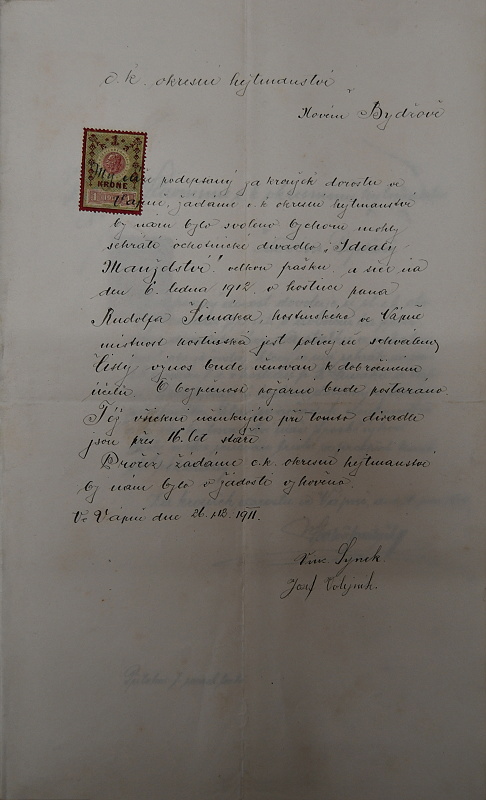 C. k. okresní hejtmanství
v
Novém Bydžově
1
KRONE
My níže podepsaný za kroužek dorostu ve
Vápni, žádáme c. k. okresní hejtmanství
by nám bylo svoleno bychom mohly
sehráti ochotnické divadlo „Idealy
Manželství" frašku, a sice na
den 6. ledna 1912, v hostinci pana
Rudolfa Šimáka, hostinského ve Vápně
místnost hostinská jest policejně schválena
Čistý výnos bude věnován k dobročinnému
účelu. O bezpečnost požární bude postaráno.
Též všickni účinkující při tomto divadle
jsou přes 16. let stáří
Pročež žádáme c. k. okresní hejtmanství
by nám bylo v žádosti vyhověno.
Ve Vápně dne 26. 12. 1911.
Vinc. Synek.
Josef